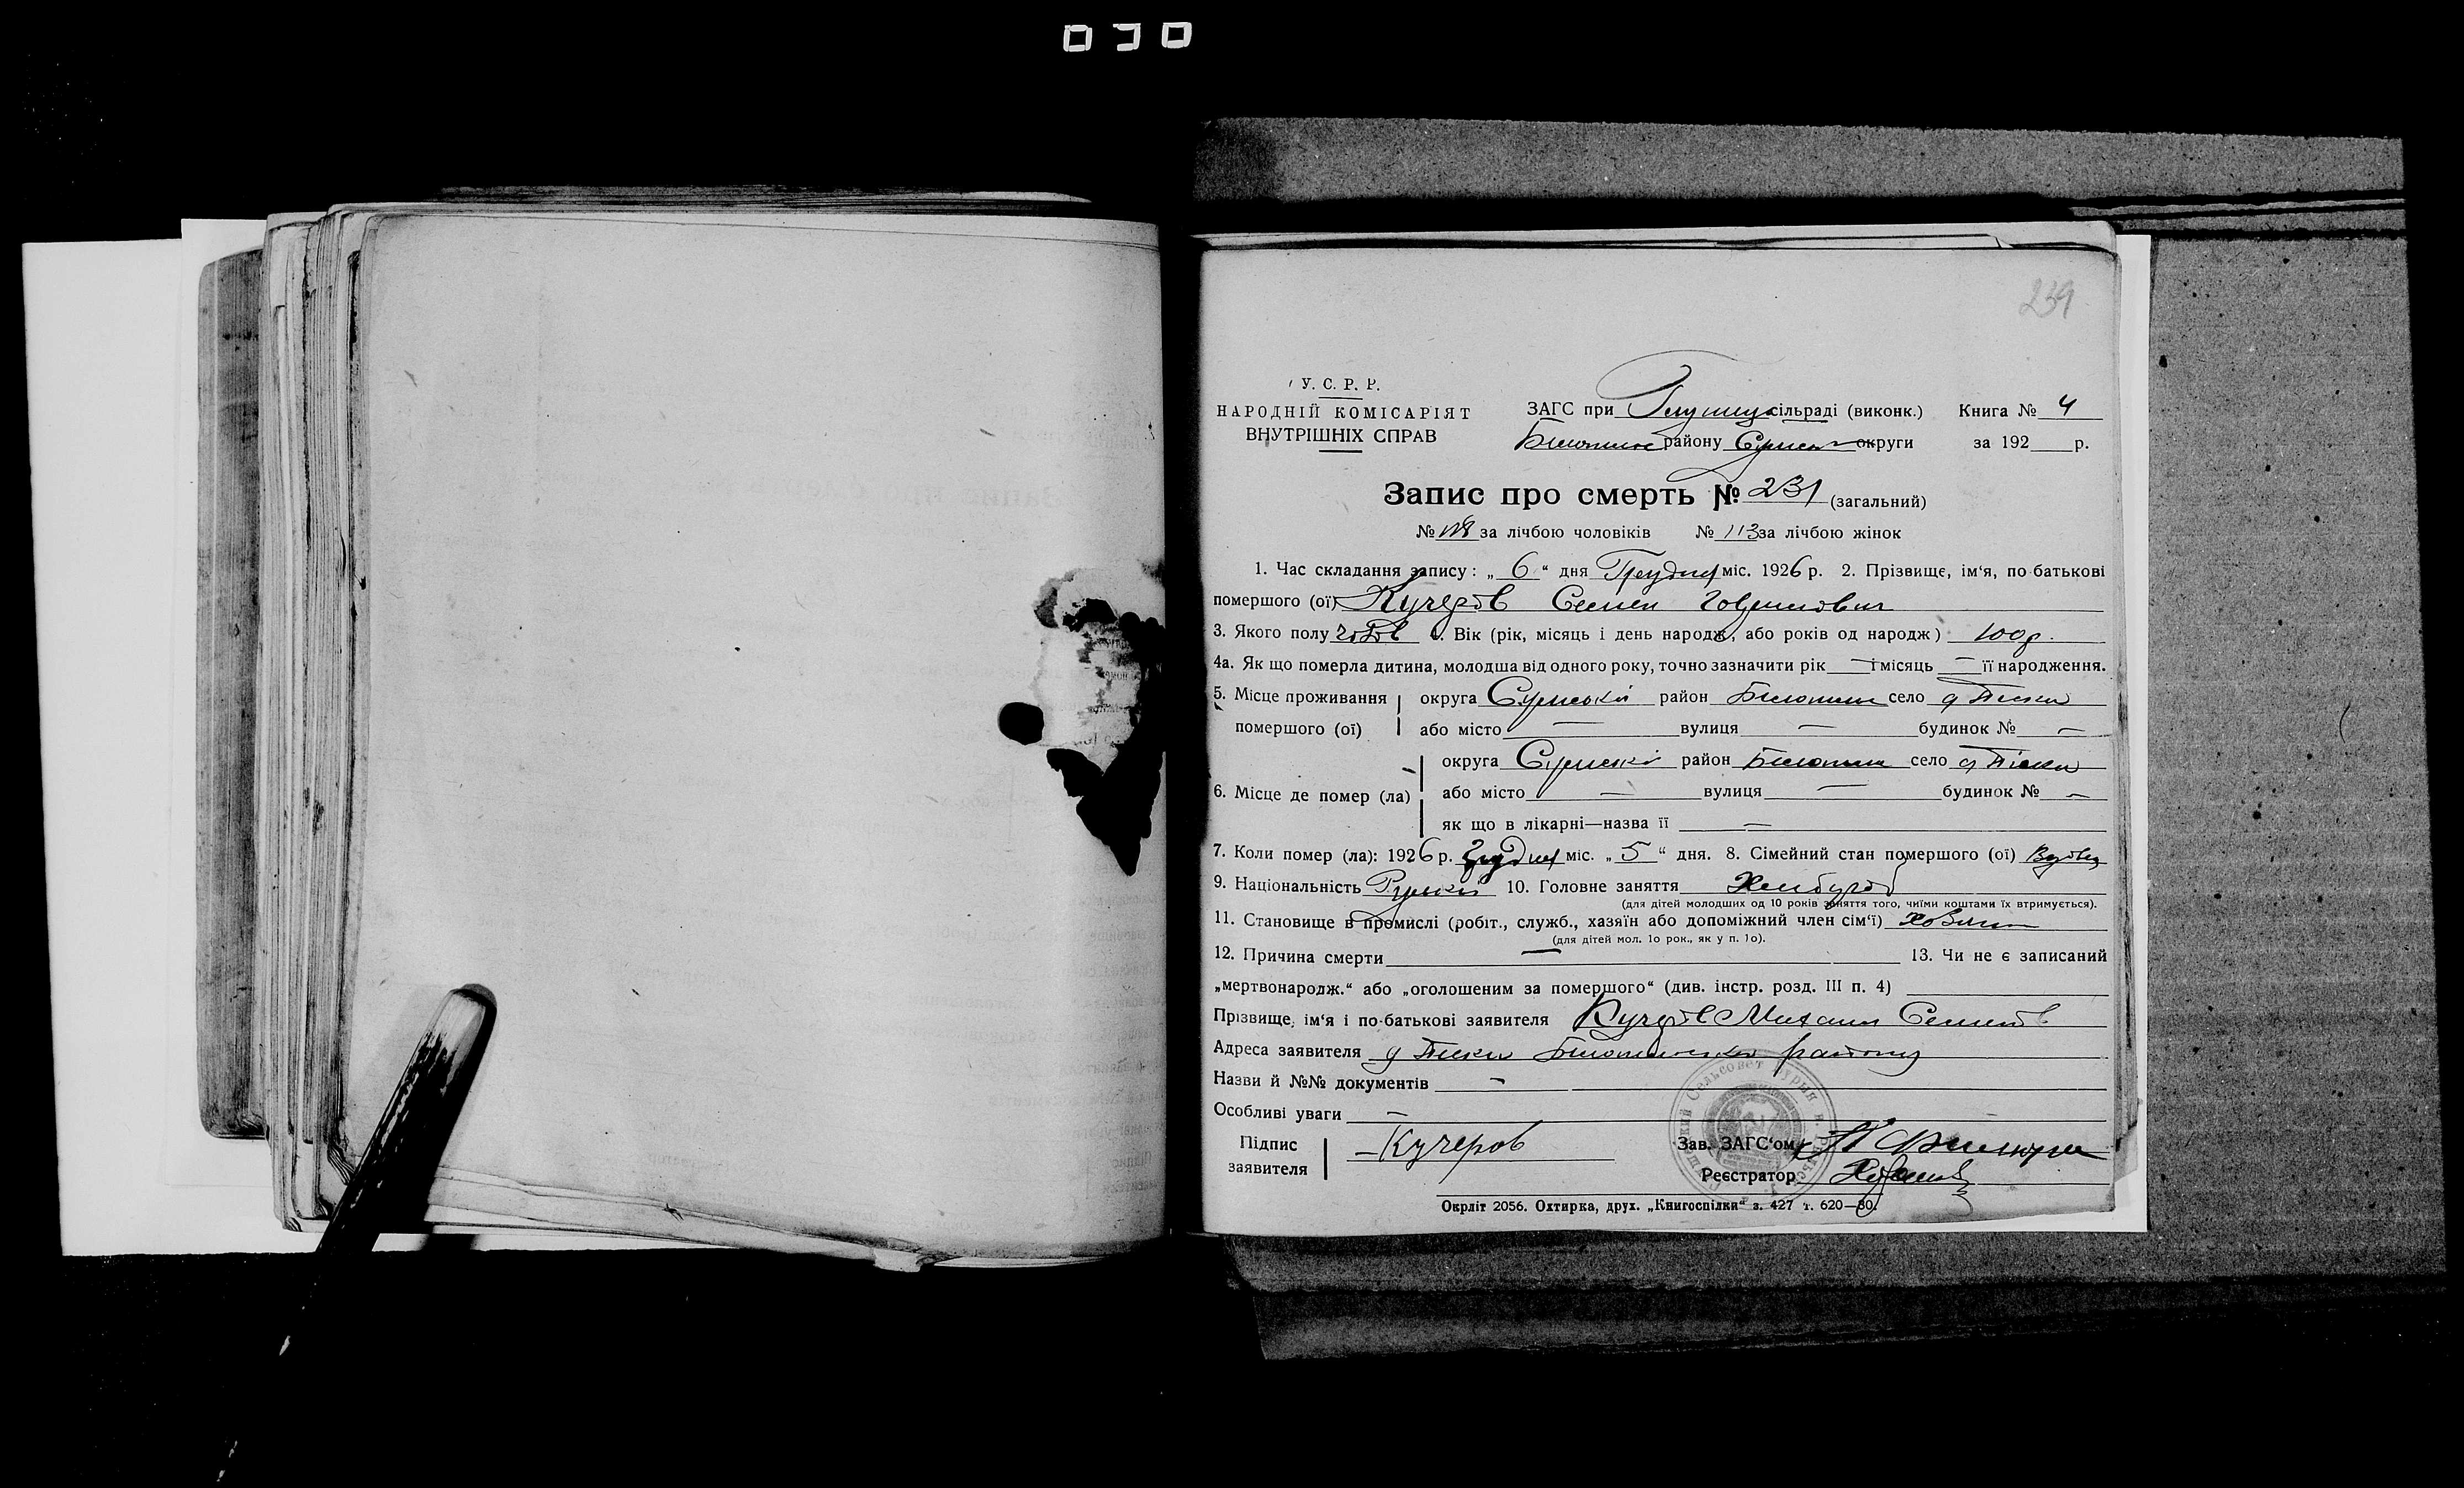 030
239
У. С. Р. Р.
НАРОДНІЙ КОМІСАРІЯТ
ВНУТРІШНІХ СПРАВ
ЗАГС при сільраді (виконк.) Книга № 4
району округи за 192 р.
Запис про смерть № 231 (загальний)
№ 118 за лічбою чоловіків № 113 за лічбою жінок
1. Час складання запису: „ 6 “ дня Грудня міс. 1926 р. 2. Прізвище, ім‘я, по батькові
помершого (ої) Кучеров Семен
3. Якого полу 4. Вік (рік, місяць і день народж, або років од народж) 100 р.
4а. Як що померла дитина, молодша від одного року, точно зазначити рік — і місяць — її народження.
5. Місце проживання округа Сумської район Білопілля село д Піски
помершого (ої) або місто — вулиця — будинок № —
округа Сумської район Білопілля село д Піски
6. Місце де помер (ла) або місто — вулиця — будинок № —
як що в лікарні—назва її —
7. Коли помер (ла): 1926 р. Грудня міс. „ 5 “ дня. 8. Сімейний стан помершого (ої) Вдовец
9. Національність Руский 10. Головне заняття Хлебороб
(для дітей молодших од 10 років заняття того, чиїми коштами їх втримується).
11. Становище в промислі (робіт., служб., хазяїн або допоміжний член сім‘ї) Хозяин
(для дітей мол. 1о рок., як у п. 1о).
12. Причина смерти — 13. Чи не є записаний
„мертвонародж.“ або „оголошеним за помершого“ (див. інстр. розд. III п. 4)
Прізвище, ім‘я і по-батькові заявителя Кучеров Михаил Семенов
Адреса заявителя д Піски району
Назви й №№ документів —
Особливі уваги —
Підпис
заявителя Кучеров
Зав. ЗАГС‘ом
Реєстратор
Окрліт 2056. Охтирка, друх. „Книгоспілки“ з. 427 т. 620—80.